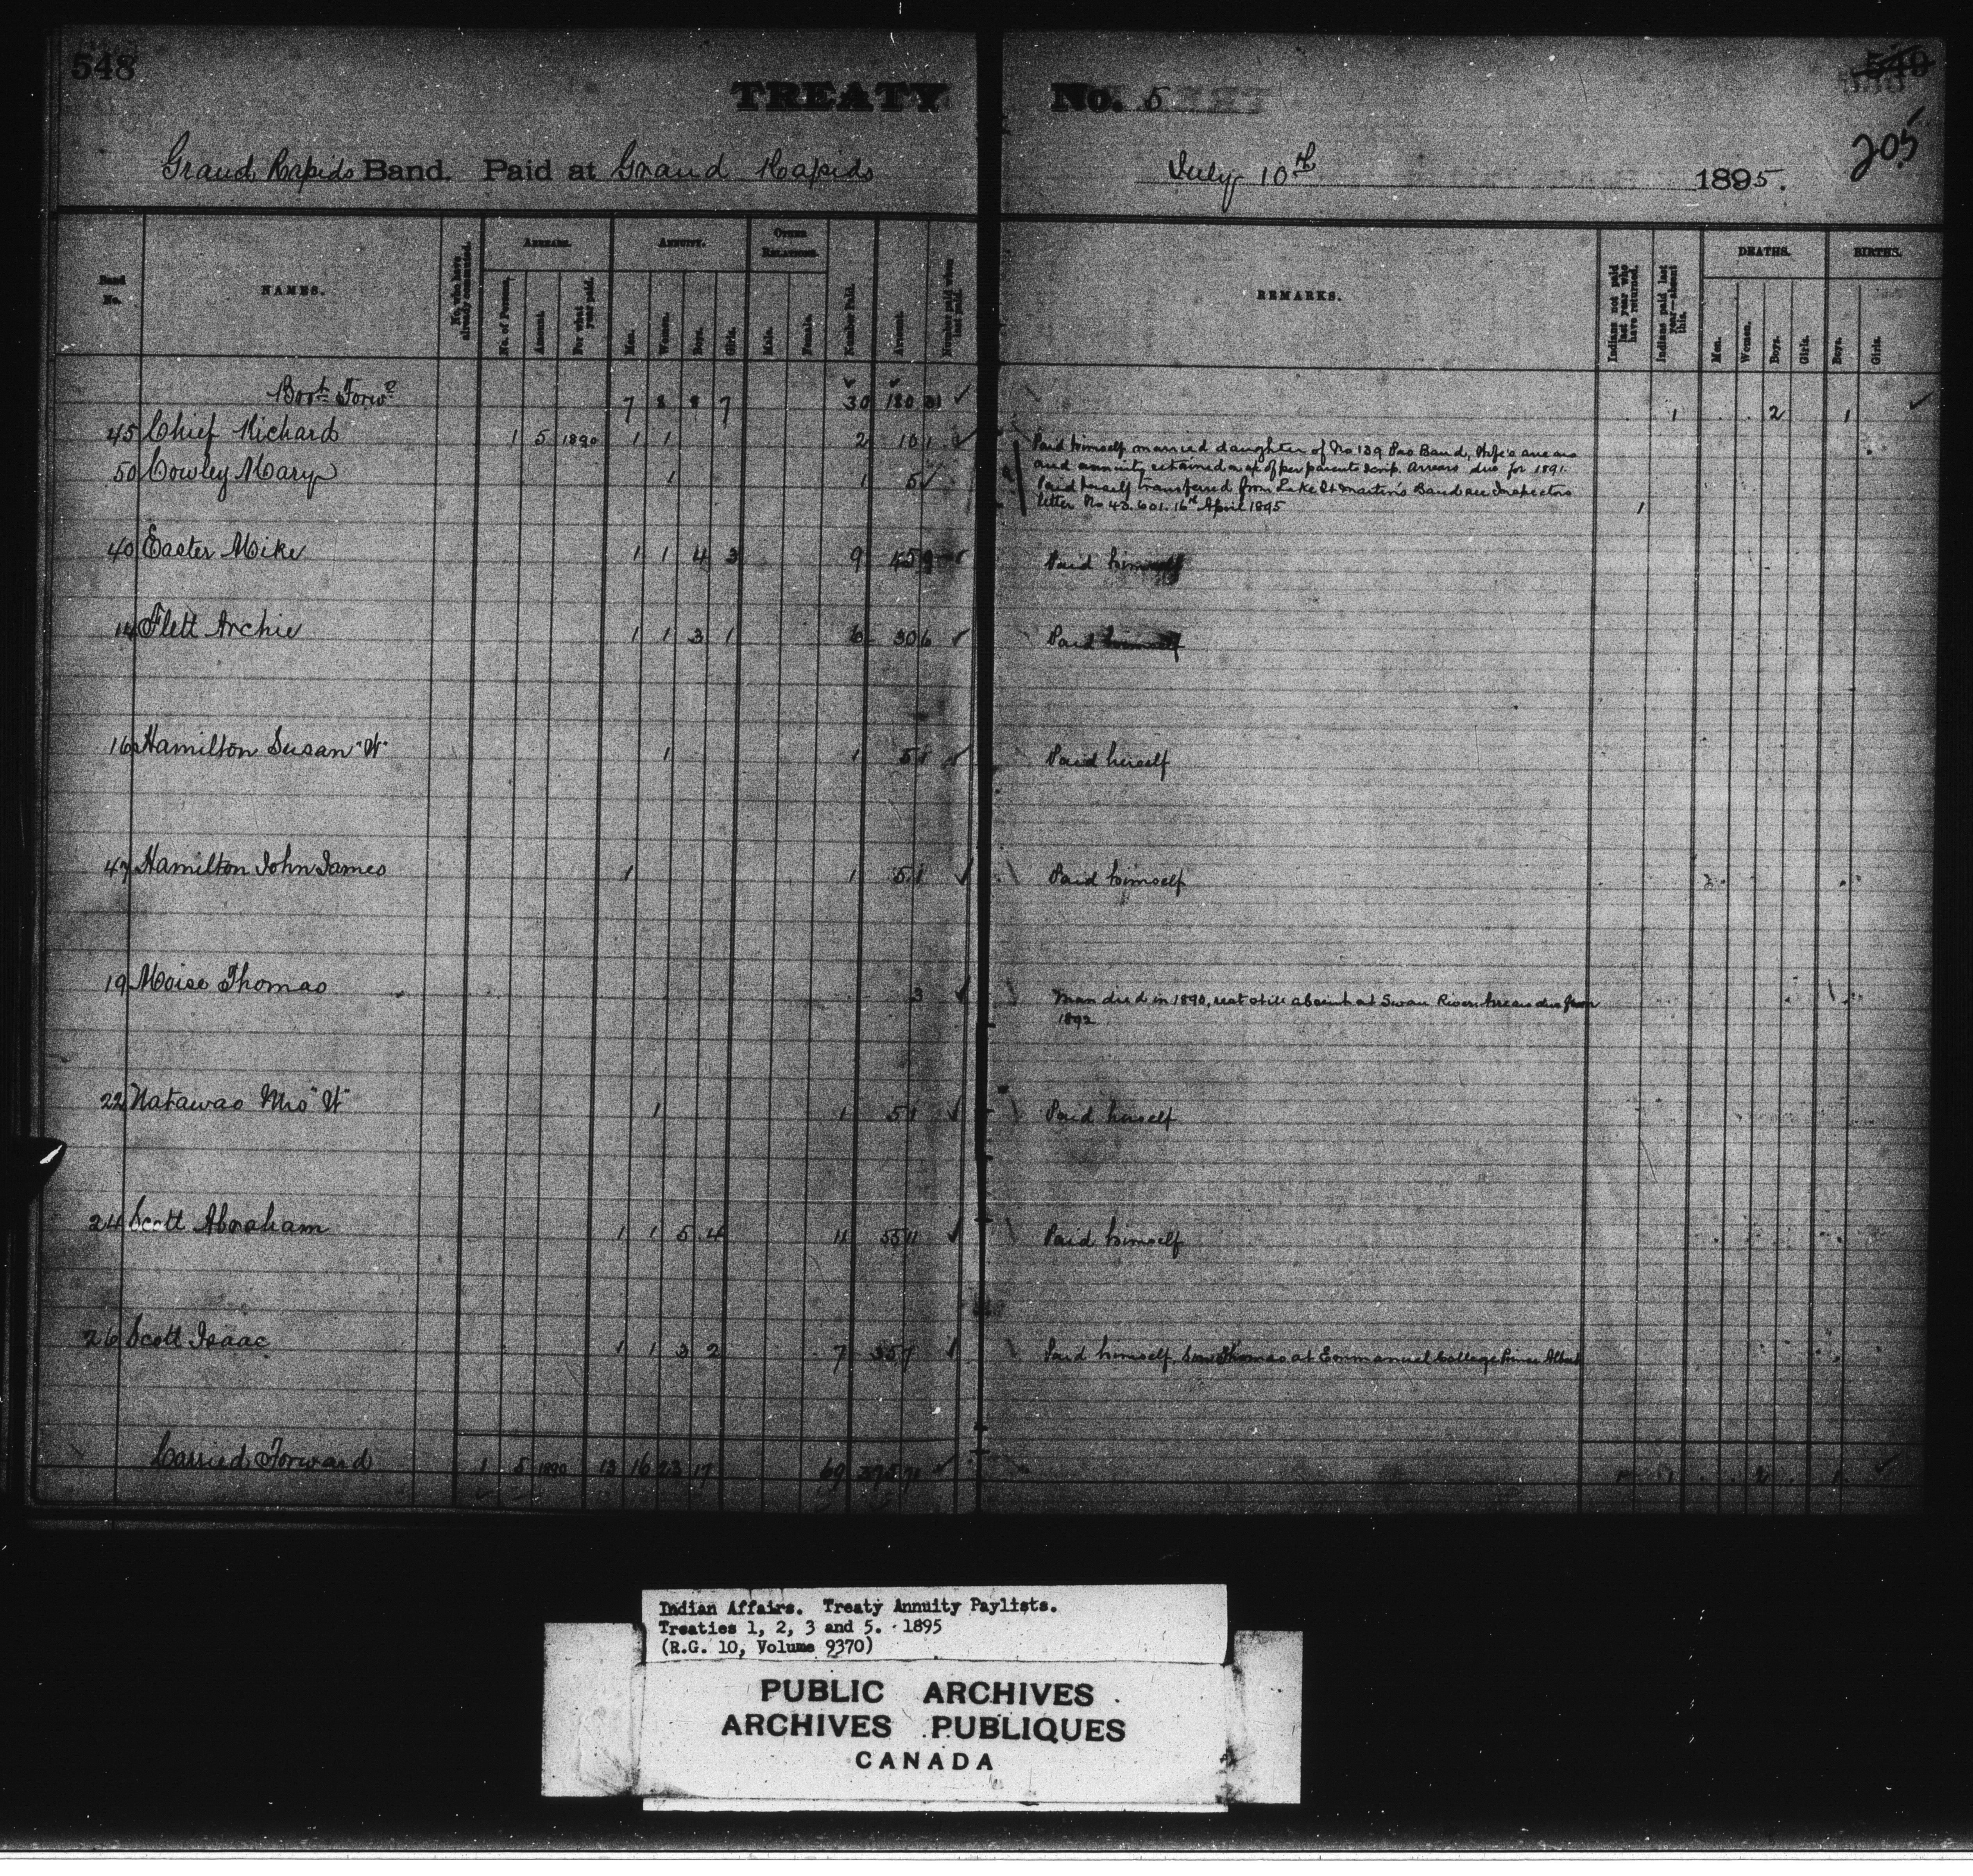 548
TREATY No. 5
549
205
Grand Rapids Band. Paid at Grand Rapids July 10th 1895.
Band No.
NAMES.
No. who have already commuted.
ARREARS.
No. of Persons.
Amount.
For what year paid.
ANNUITY.
Men.
Women.
Boys.
Girls.
OTHER RELATIONS.
Male.
Female.
Number Paid.
Amount.
Number paid when last paid.
REMARKS.
Indians not paid last year who have returned.
Indians paid last year—absent this.
DEATHS.
Men.
Women.
Boys.
Girls.
BIRTHS.
Boys.
Girls.
Bort Forwd 7 8 8 7 30 180 31 1 2 1
45 Chief Richard 1 5 1890 1 1 2 10 1 Paid himself married daughter of No 139 Pas Band, Wife's arrears
and annuity retained a/c of her parents scrip. Arrears due for 1891.
50 Cowley Mary 1 1 5 Paid herself transferred from Lake St Martin's Band see Inspectors
letter No 43.601. 16th April 1895 1
40 Easter Mike 1 1 4 3 9 45 9 Paid himself
14 Flett Archie 1 1 3 1 6 30 6 Paid himself
16 Hamilton Susan "W" 1 1 5 1 Paid herself
47 Hamilton John James 1 1 5 1 Paid himself
19 Moise Thomas 3 Man died in 1890, rest still absent at Swan River Arrears due from
1892
22 Natawao Mrs "W" 1 1 5 1 Paid herself
24 Scott Abraham 1 1 5 4 11 55 11 Paid himself
26 Scott Isaac 1 1 3 2 7 35 7 Paid himself, Son Thomas at Emmanuel College Prince Albert
Carried Forward 1 5 1890 13 16 23 17 69 375 71 1 1 2 1
Indian Affairs. Treaty Annuity Paylists.
Treaties 1, 2, 3 and 5. 1895
(R.G. 10, Volume 9370)
PUBLIC ARCHIVES
ARCHIVES PUBLIQUES
CANADA